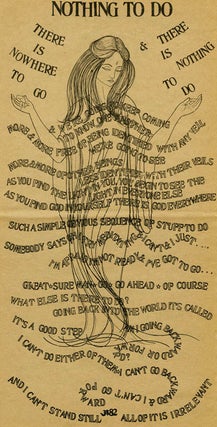 NOTHING TO DO
THERE IS NOWHERE TO GO
&
THERE IS NOTHING TO DO
COMING
MORE & MORE FREE OF BEING IDENTIFIED WITH ANY VEIL
MORE & MORE OF OTHER BEINGS IDENTIFIED WITH THEIR VEILS
AS YOU FIND THE LIGHT IN YOU, YOU BEGIN TO SEE THE LIGHT IN EVERYONE ELSE
AS YOU FIND GOD IN YOURSELF THERE IS GOD EVERYWHERE
SUCH A SIMPLE OBVIOUS SEQUENCE OF STUFF TO DO
SOMEBODY SAYS
I CAN'T, I JUST....
I'M NOT READY & I'VE GOT TO GO...
GREAT • SURE MAN • GO AHEAD • OF COURSE
WHAT ELSE IS THERE TO DO?
GOING BACK INTO THE WORLD IT'S CALLED
IT'S A GOOD STEP
AM I GOING BACKWARD OR FORWARD?
I CAN'T DO EITHER OF THEM
I CAN'T GO BACKWARD & I CAN'T GO FORWARD
AND I CAN'T STAND STILL
ALL OF IT IS IRRELEVANT